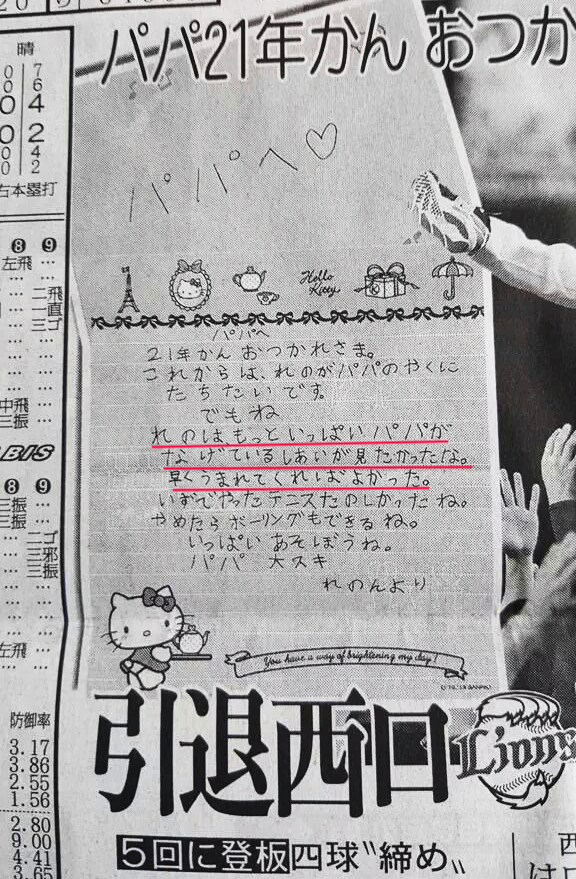 パパ21年かん おつか
晴
0 7
0 6
0 4
0 2
0 4
0 2
右本塁打
8 9
左飛 …
… 二飛
… 一直
… 三ゴ
中飛 …
三振 …
8 9
三振 …
三振 …
… 二ゴ
… 三邪
… 三振
左飛 …
防御率
3.17
3.86
2.55
1.56
2.80
9.00
4.41
3.65
パパへ♡
Hello Kitty
パパへ
21年かん おつかれさま。
これからは、れのがパパのやくに
たちたいです。
でもね
れのは、もっといっぱいパパが
なげているしあいが見たかったな。
早くうまれてくればよかった。
いずでやったテニスたのしかったね。
やめたらボーリングもできるね。
いっぱいあそぼうね。
パパ 大スキ
れのんより
You have a way of brightening my day!
引退西口
Lions
5回に登板四球〝締め〟